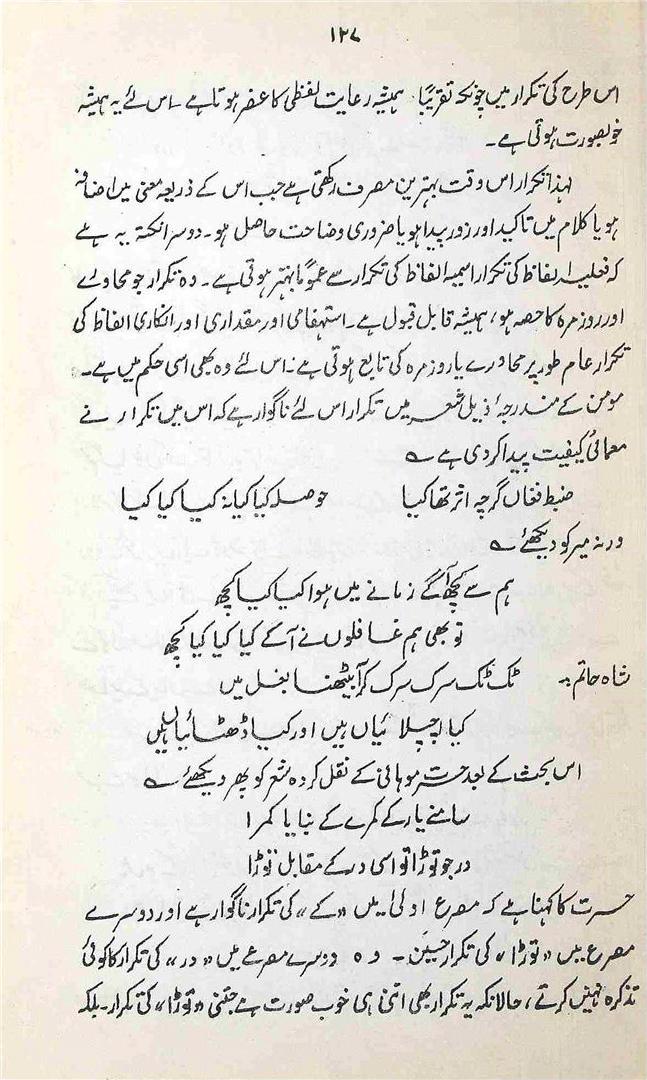 ۱۲۷
اس طرح کی تکرار میں چونکہ تقریبًا ہمیشہ رعایت لفظی کا عنصر ہوتا ہے ۔ اس لئے یہ ہمیشہ
خوبصورت ہوتی ہے ۔
لہذا تکرار اس وقت بہترین مصرف رکھتی ہے جب اس کے ذریعہ معنی میں اضافہ
ہو یا کلام میں تاکید اور زور پیدا ہو یا ضروری وضاحت حاصل ہو ۔ دوسرا نکتہ یہ ہے
کہ فعلیہ الفاظ کی تکرار اسمیہ الفاظ کی تکرار سے عمومًا بہتر ہوتی ہے ۔ وہ تکرار جو محاورے
اور روزمرہ کا حصہ ہو، ہمیشہ قابل قبول ہے ۔ استفہامی اور مقداری اور انکاری الفاظ کی
تکرار عام طور پر محاورے یا روزمرہ کی تابع ہوتی ہے ۔ اس لئے وہ بھی اسی حکم میں ہے ۔
مومن کے مندرجۂ ذیل شعر میں تکرار اس لئے ناگوار ہے کہ اس میں تکرار نے
معمائی کیفیت پیدا کر دی ہے ؎
ضبط فغاں گرچہ اثر تھا کیا حوصلہ کیا کیا نہ کیا کیا کیا
ورنہ میر کو دیکھئے ؎
ہم سے کچھ آگے زمانے میں ہوا کیا کیا کچھ
تو بھی ہم غافلوں نے آکے کیا کیا کیا کچھ
شاہ حاتم ؎ ٹک ٹک سرک سرک کر آبیٹھنا بغل میں
کیا اچپلائیاں ہیں اور کیا ڈھٹائیاں ہیں
اس بحث کے بعد حسرت موہانی کے نقل کردہ شعر کو پھر دیکھئے ؎
سامنے یار کے کمرے کے بنایا کمرا
در جو توڑا تو اسی در کے مقابل توڑا
حسرت کا کہنا ہے کہ مصرع اولیٰ میں «کے» کی تکرار ناگوار ہے اور دوسرے
مصرع میں «توڑا» کی تکرار حسین ۔ وہ دوسرے مصرعے میں «در» کی تکرار کا کوئی
تذکرہ نہیں کرتے، حالانکہ یہ تکرار بھی اتنی ہی خوب صورت ہے جتنی «توڑا» کی تکرار ۔ بلکہ